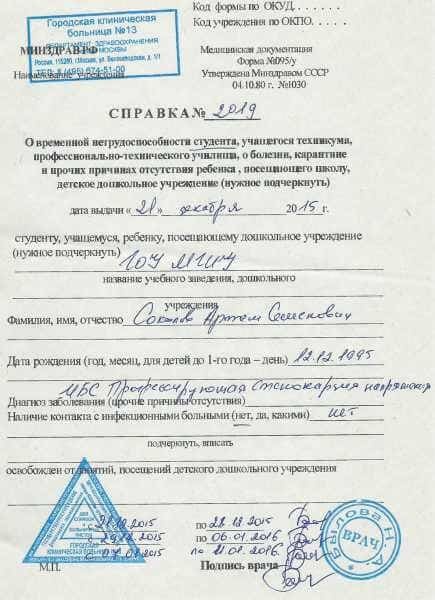 Код формы по ОКУД. . . . . . .
Код учреждения по ОКПО. . . . .
Городская клиническая
больница №13
ДЕПАРТАМЕНТ ЗДРАВООХРАНЕНИЯ
МОСКВЫ
Россия, 115280, г.Москва, ул. Велозаводская, д. 1/1
ТЕЛ: 8 (495) 674-51-00
МИНЗДРАВ РФ
Наименование учреждения
Медицинская документация
Форма №095/у
Утверждена Минздравом СССР
04.10.80 г. №1030
СПРАВКА № 2019
О временной нетрудоспособности студента, учащегося техникума,
профессионально-технического училища, о болезни, карантине
и прочих причинах отсутствия ребенка , посещающего школу,
детское дошкольное учреждение (нужное подчеркнуть)
дата выдачи « 21 » декабря 2015 г.
студенту, учащемуся, ребенку, посещающему дошкольное учреждение
(нужное подчеркнуть) ГОУ
название учебного заведения, дошкольного
учреждения
Фамилия, имя, отчество Соколов Артем Семенович
Дата рождения (год, месяц, для детей до 1-го года – день) 12.12.1995
ИБС Прогрессирующая стенокардия напряжения
Диагноз заболевания (прочие причины отсутствия)
Наличие контакта с инфекционными больными (нет, да, какими) нет
подчеркнуть, вписать
освобожден от занятий, посещений детского дошкольного учреждения
с 21.12.2015 по 28.12.2015
с 29.12.2015 по 06.01.2016
по 11.01.2016
М.П.
Подпись врача
ГОРОДСКАЯ
КЛИНИЧЕСКАЯ БОЛЬНИЦА
Былова Н.А.
ВРАЧ